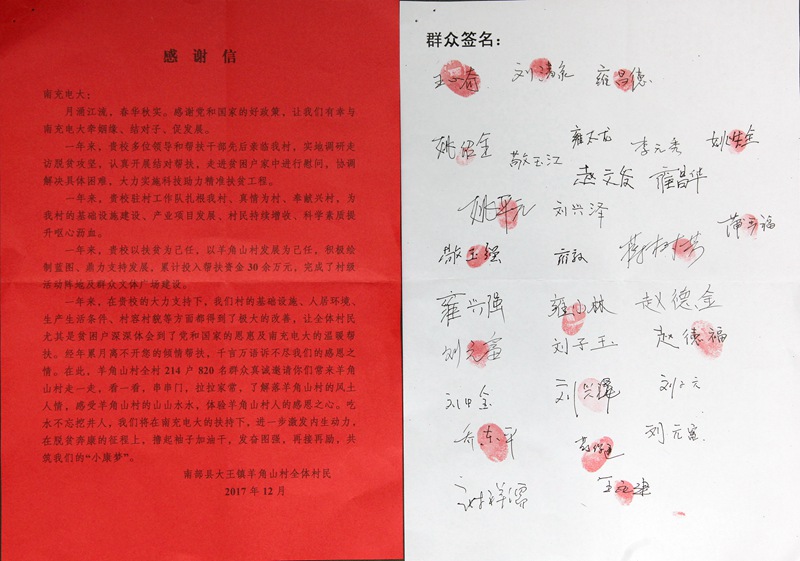 感谢信
南充电大：
月涌江流，春华秋实。感谢党和国家的好政策，让我们有幸与
南充电大牵姻缘、结对子、促发展。
一年来，贵校多位领导和帮扶干部先后亲临我村，实地调研走
访脱贫攻坚，认真开展结对帮扶，走进贫困户家中进行慰问，协调
解决具体困难，大力实施科技助力精准扶贫工程。
一年来，贵校驻村工作队扎根我村、真情为村、奉献兴村，为
我村的基础设施建设、产业项目发展、村民持续增收、科学素质提
升呕心沥血。
一年来，贵校以扶贫为己任，以羊角山村发展为己任，积极绘
制蓝图、鼎力支持发展，累计投入帮扶资金 30 余万元，完成了村级
活动阵地及群众文体广场建设。
一年来，在贵校的大力支持下，我们村的基础设施、人居环境、
生产生活条件、村容村貌等方面都得到了极大的改善，让全体村民
尤其是贫困户深深体会到了党和国家的恩惠及南充电大的温暖帮
扶。经年累月离不开您的倾情帮扶，千言万语诉不尽我们的感恩之
情。在此，羊角山村全村 214 户 820 名群众真诚邀请你们常来羊角
山村走一走，看一看，串串门，拉拉家常，了解落羊角山村的风土
人情，感受羊角山村的山山水水，体验羊角山村人的感恩之心。吃
水不忘挖井人，我们将在南充电大的扶持下，进一步激发内生动力，
在脱贫奔康的征程上，撸起袖子加油干，发奋图强，再接再励，共
筑我们的“小康梦”。
南部县大王镇羊角山村全体村民
2017 年 12 月
群众签名：
雍昌德
敬玉江 李元秀
赵文俊 雍昌华
刘兴泽
敬玉强
雍兴强 雍小林 赵德金
刘元富 刘子玉 赵德福
刘中金 刘兴泽
乔东平 刘元富